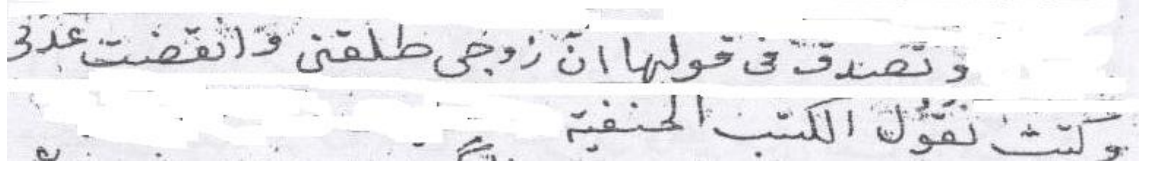 وتصدق فى قولها ان زوجى طلقنى وانقضت عدتى
وكتب نقول الكتب الحنفية